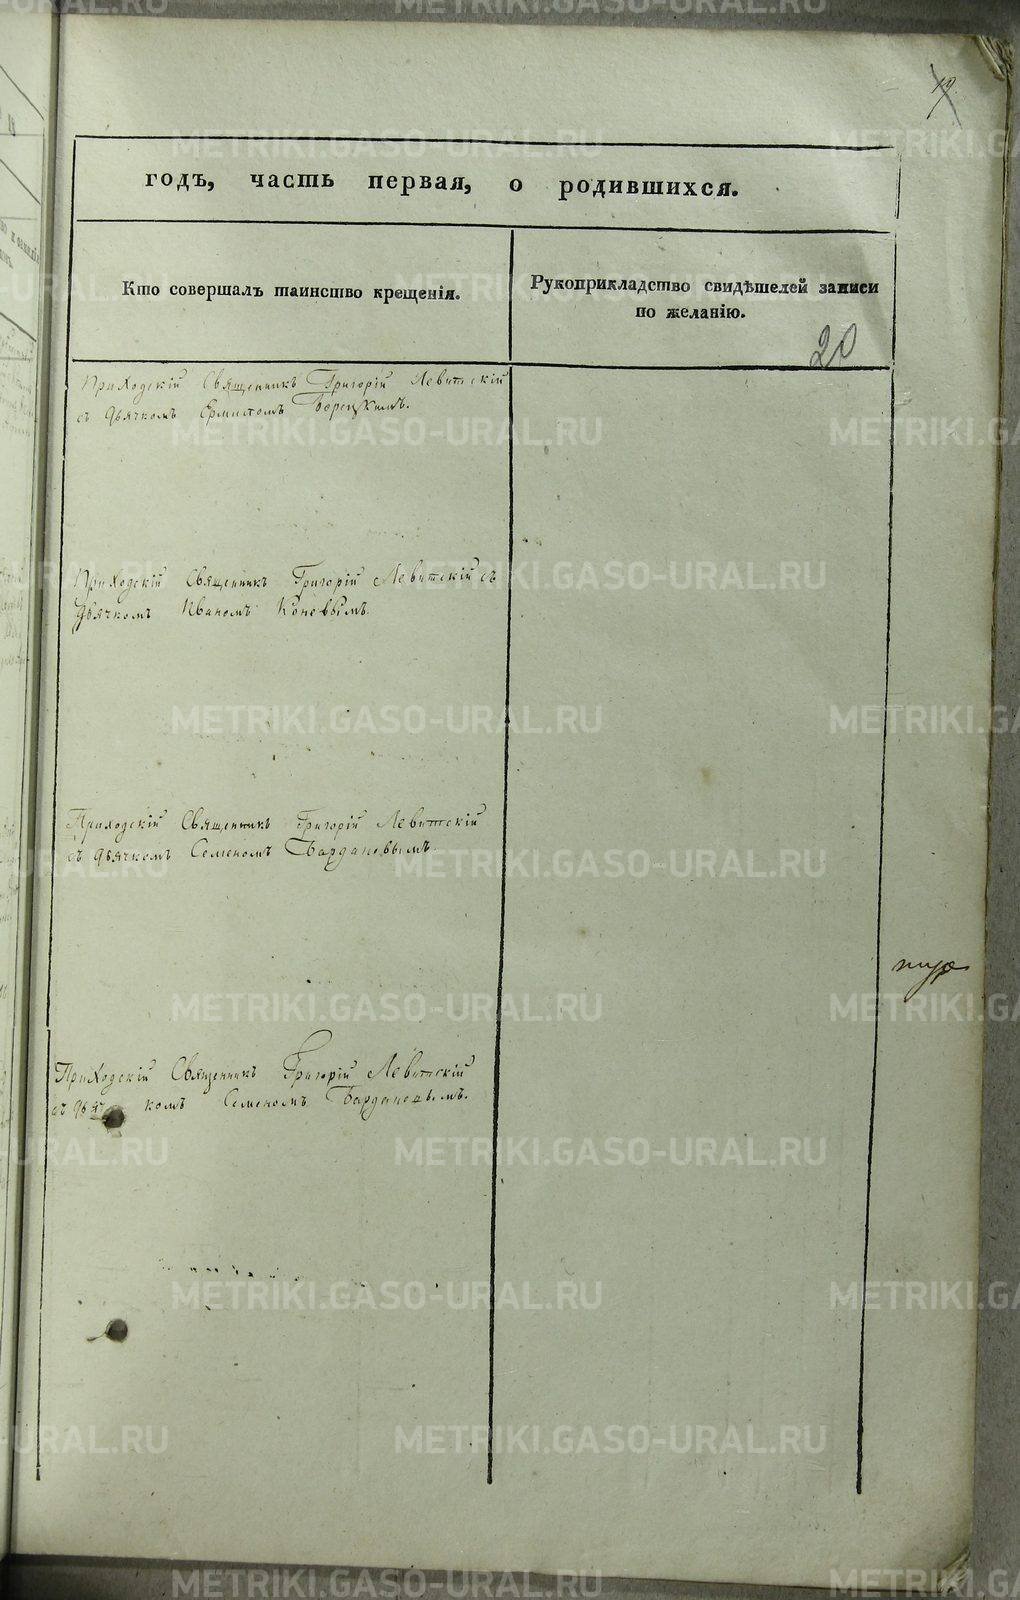 19.
годъ, часть первая, о родившихся.
Кто совершалъ таинство крещенія.
Рукоприкладство свидѣтелей записи
по желанію.
20
Приходскій Священникъ Григорій Левитскій
съ дьячкомъ
Приходскій Священникъ Григорій Левитскій съ
дьячкомъ Иваномъ Коневымъ.
Приходскій Священникъ Григорій Левитскій
съ дьячкомъ Семеномъ Бардановымъ.
Приходскій Священникъ Григорій Левитскій
съ дьячкомъ Семеномъ Бардановымъ.
METRIKI.GASO-URAL.RU